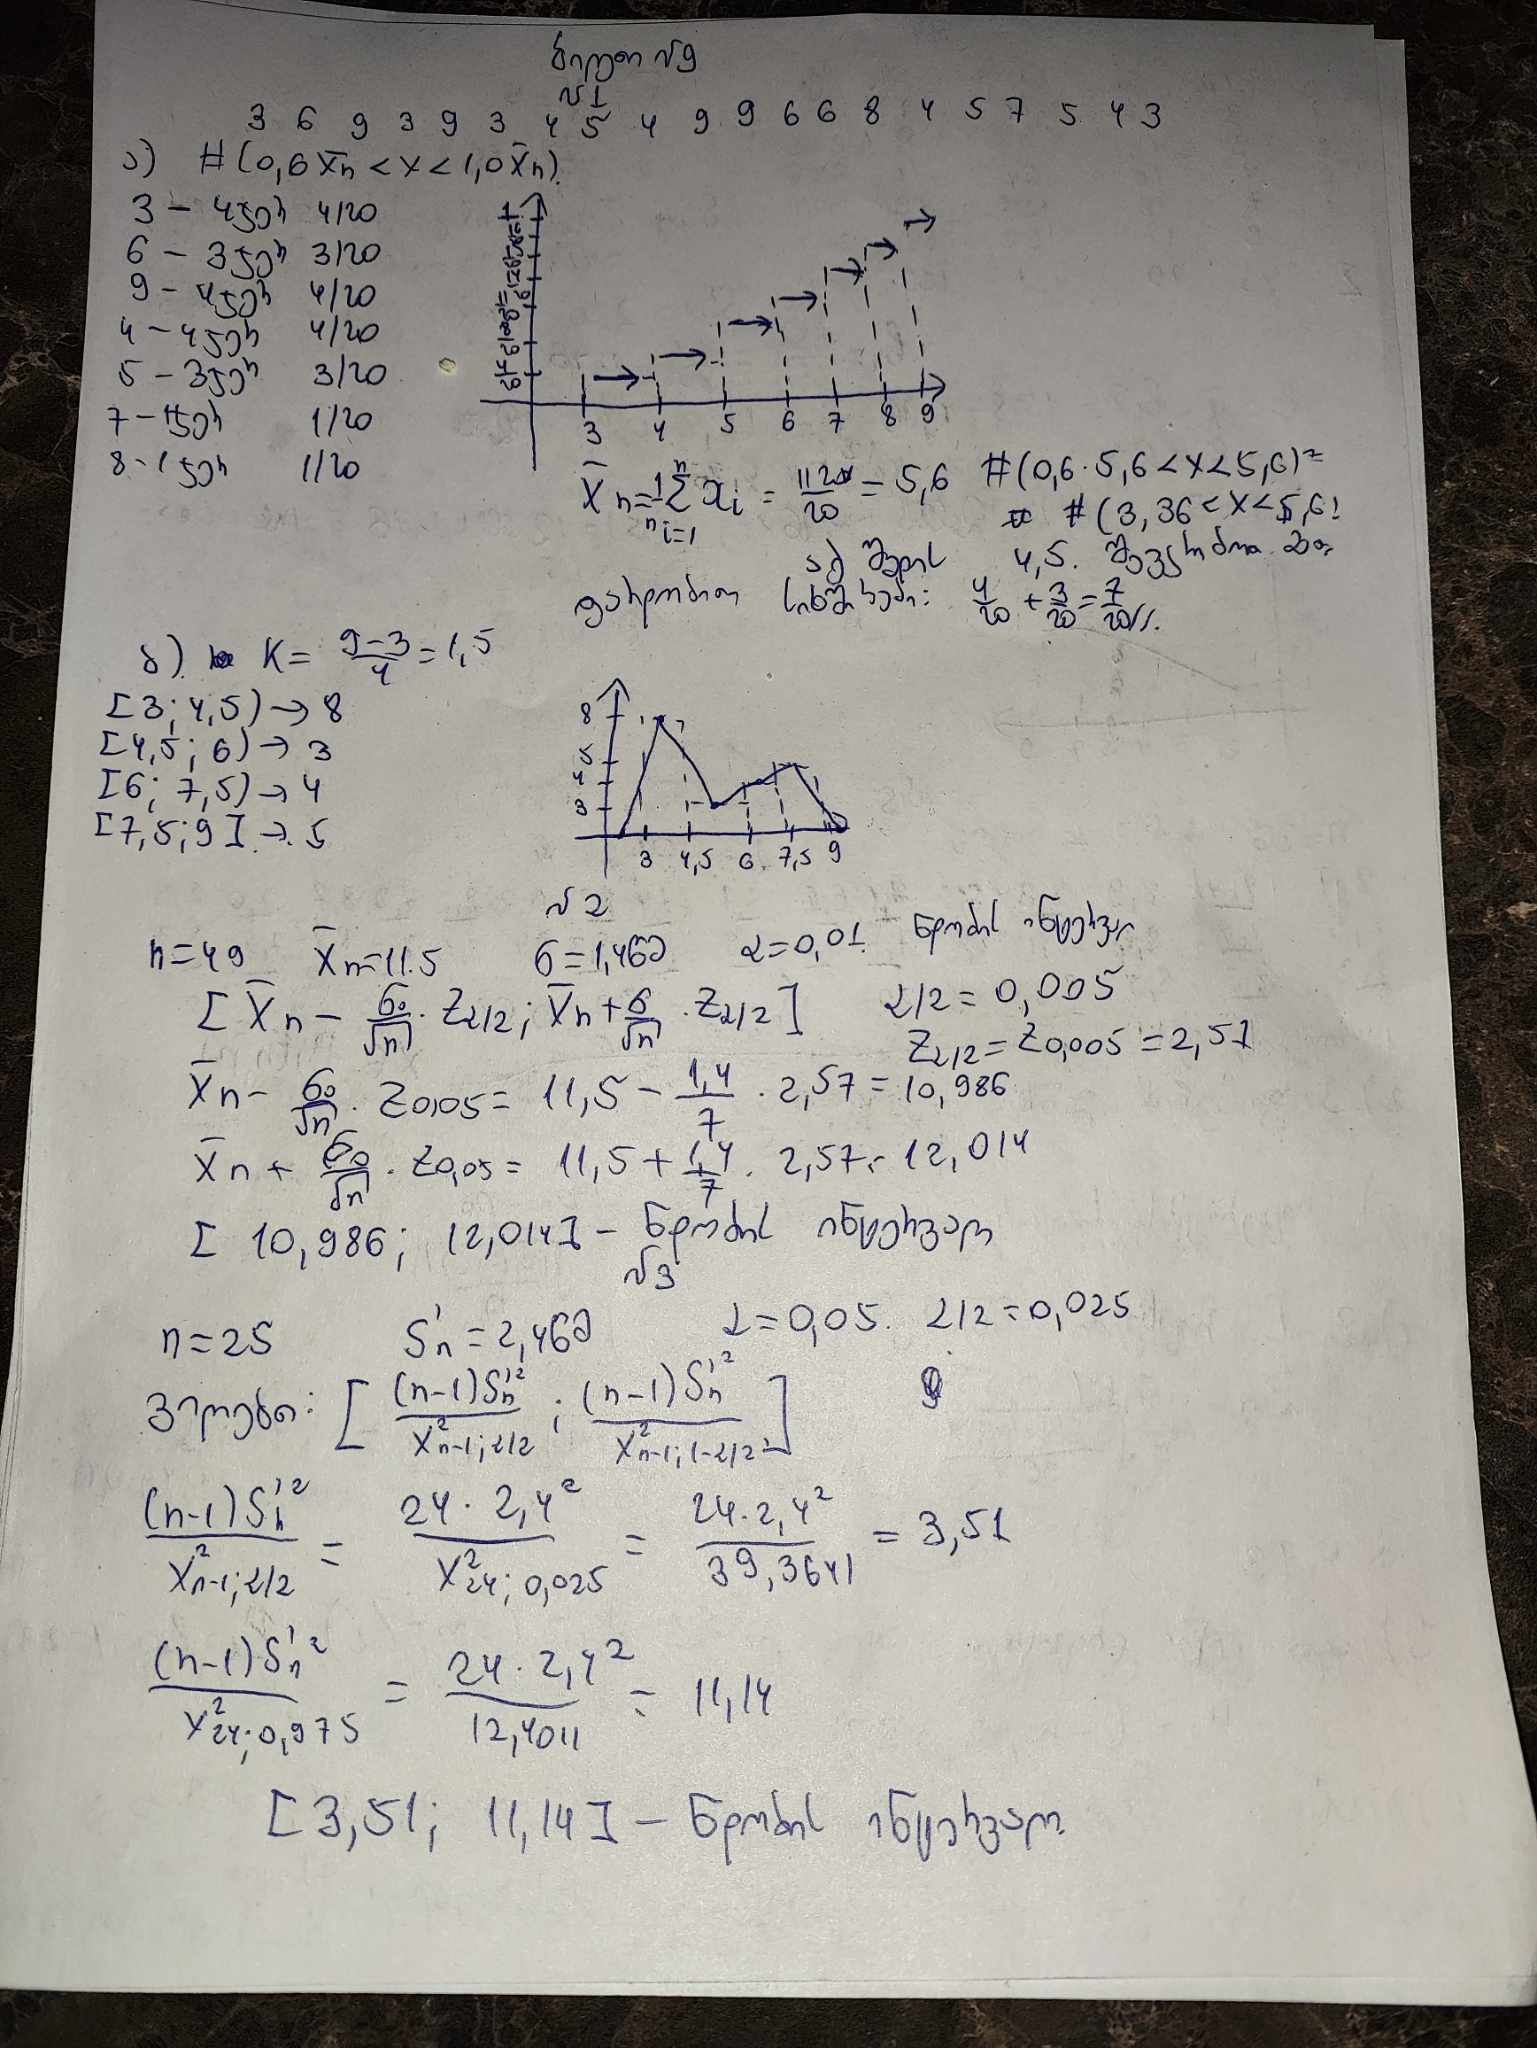 ბილეთი №9
№1
3 6 9 3 9 3 4 5 4 9 9 6 6 8 4 5 7 5 4 3
ა) #(0,6 X̄n < x < 1,0 X̄n)
3 - 4ჯერ 4/20
6 - 3ჯერ 3/20
9 - 4ჯერ 4/20
4 - 4ჯერ 4/20
5 - 3ჯერ 3/20
7 - 1ჯერ 1/20
8 - 1ჯერ 1/20
3 4 5 6 7 8 9
X̄n = 1/n Σ i=1 n xi = 112/20 = 5,6 #(0,6 · 5,6 < x < 5,6) =
#(3,36 < x < 5,6)
აქ შედის 4,5. შევკრიბოთ მათ
ფარდობითი სიხშირეები: 4/20 + 3/20 = 7/20 //.
ბ) K = (9-3)/4 = 1,5
[3; 4,5) → 8
[4,5; 6) → 3
[6; 7,5) → 4
[7,5; 9] → 5
8
5
4
3
3 4,5 6 7,5 9
№2
n=49 X̄n=11.5 σ=1,4სმ α=0,01. ნდობის ინტერვალ
[X̄n - σ0/√n · Zα/2; X̄n + σ/√n · Zα/2] α/2 = 0,005
Zα/2 = Z0,005 = 2,57
X̄n - σ0/√n · Z0,05 = 11,5 - 1,4/7 · 2,57 = 10,986
X̄n + σ0/√n · Z0,05 = 11,5 + 1,4/7 · 2,57 = 12,014
[10,986; 12,014] - ნდობის ინტერვალი
№3
n=25 S'n = 2,4სმ α=0,05. α/2 = 0,025
ვიღებთ: [(n-1)S'n²/χ²n-1;α/2 ; (n-1)S'n²/χ²n-1;1-α/2]
(n-1)S'n²/χ²n-1;α/2 = 24 · 2,4²/χ²24;0,025 = 24 · 2,4²/39,3641 = 3,51
(n-1)S'n²/χ²24;0,975 = 24 · 2,4²/12,4011 = 11,14
[3,51; 11,14] - ნდობის ინტერვალი.